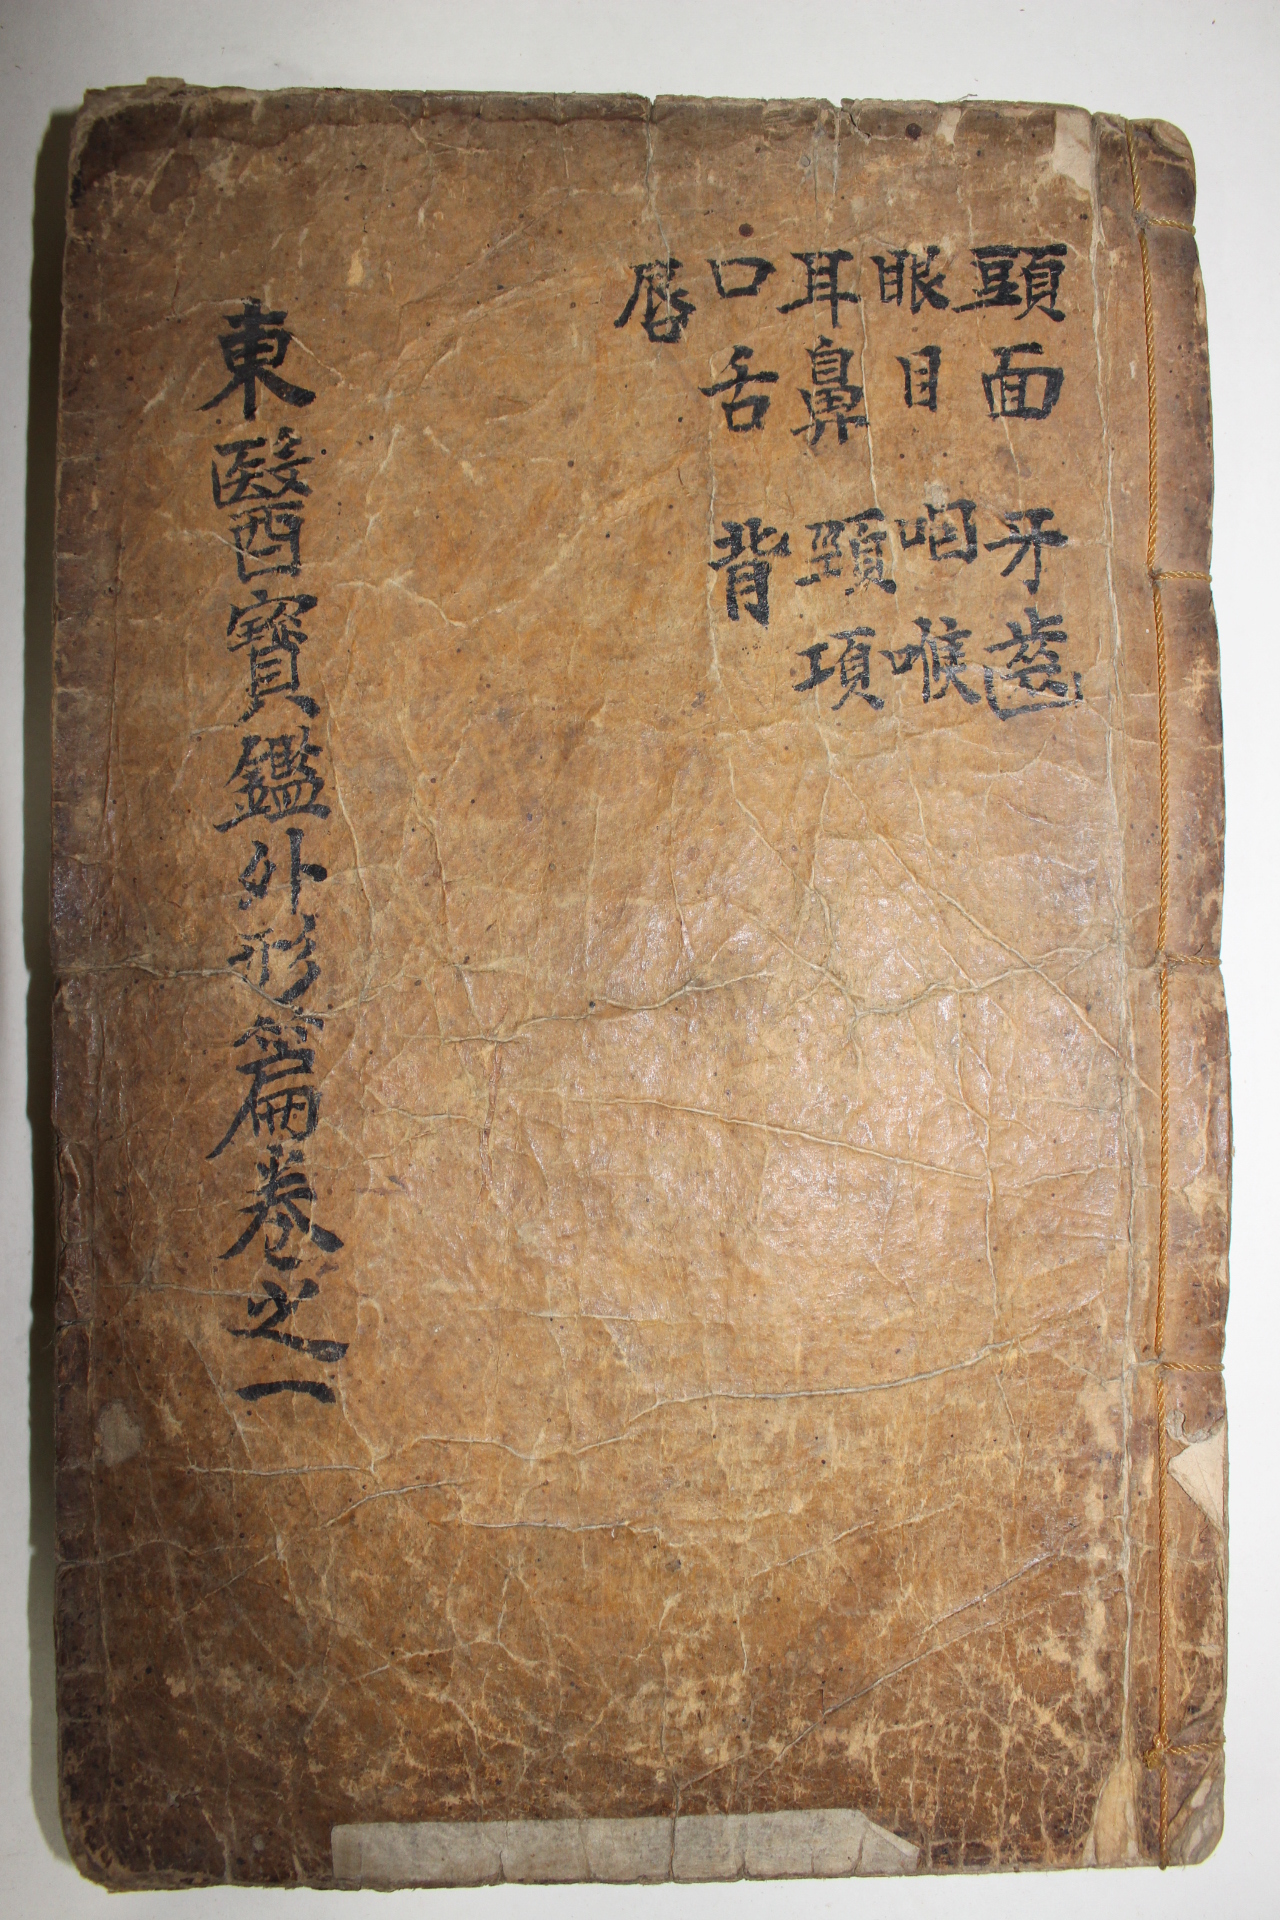 頭面
眼目
耳鼻
口舌
唇
牙齒
咽喉
頸項
背
東醫寶鑑外形篇卷之一